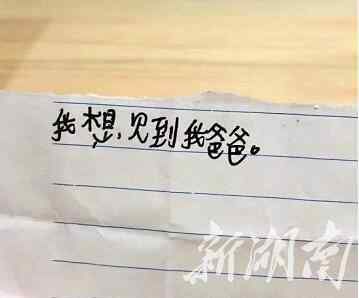 我想,见到我爸爸。
新湖南